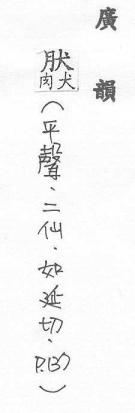 廣韻
肰肉犬(平聲、二仙、如延切、P.137)